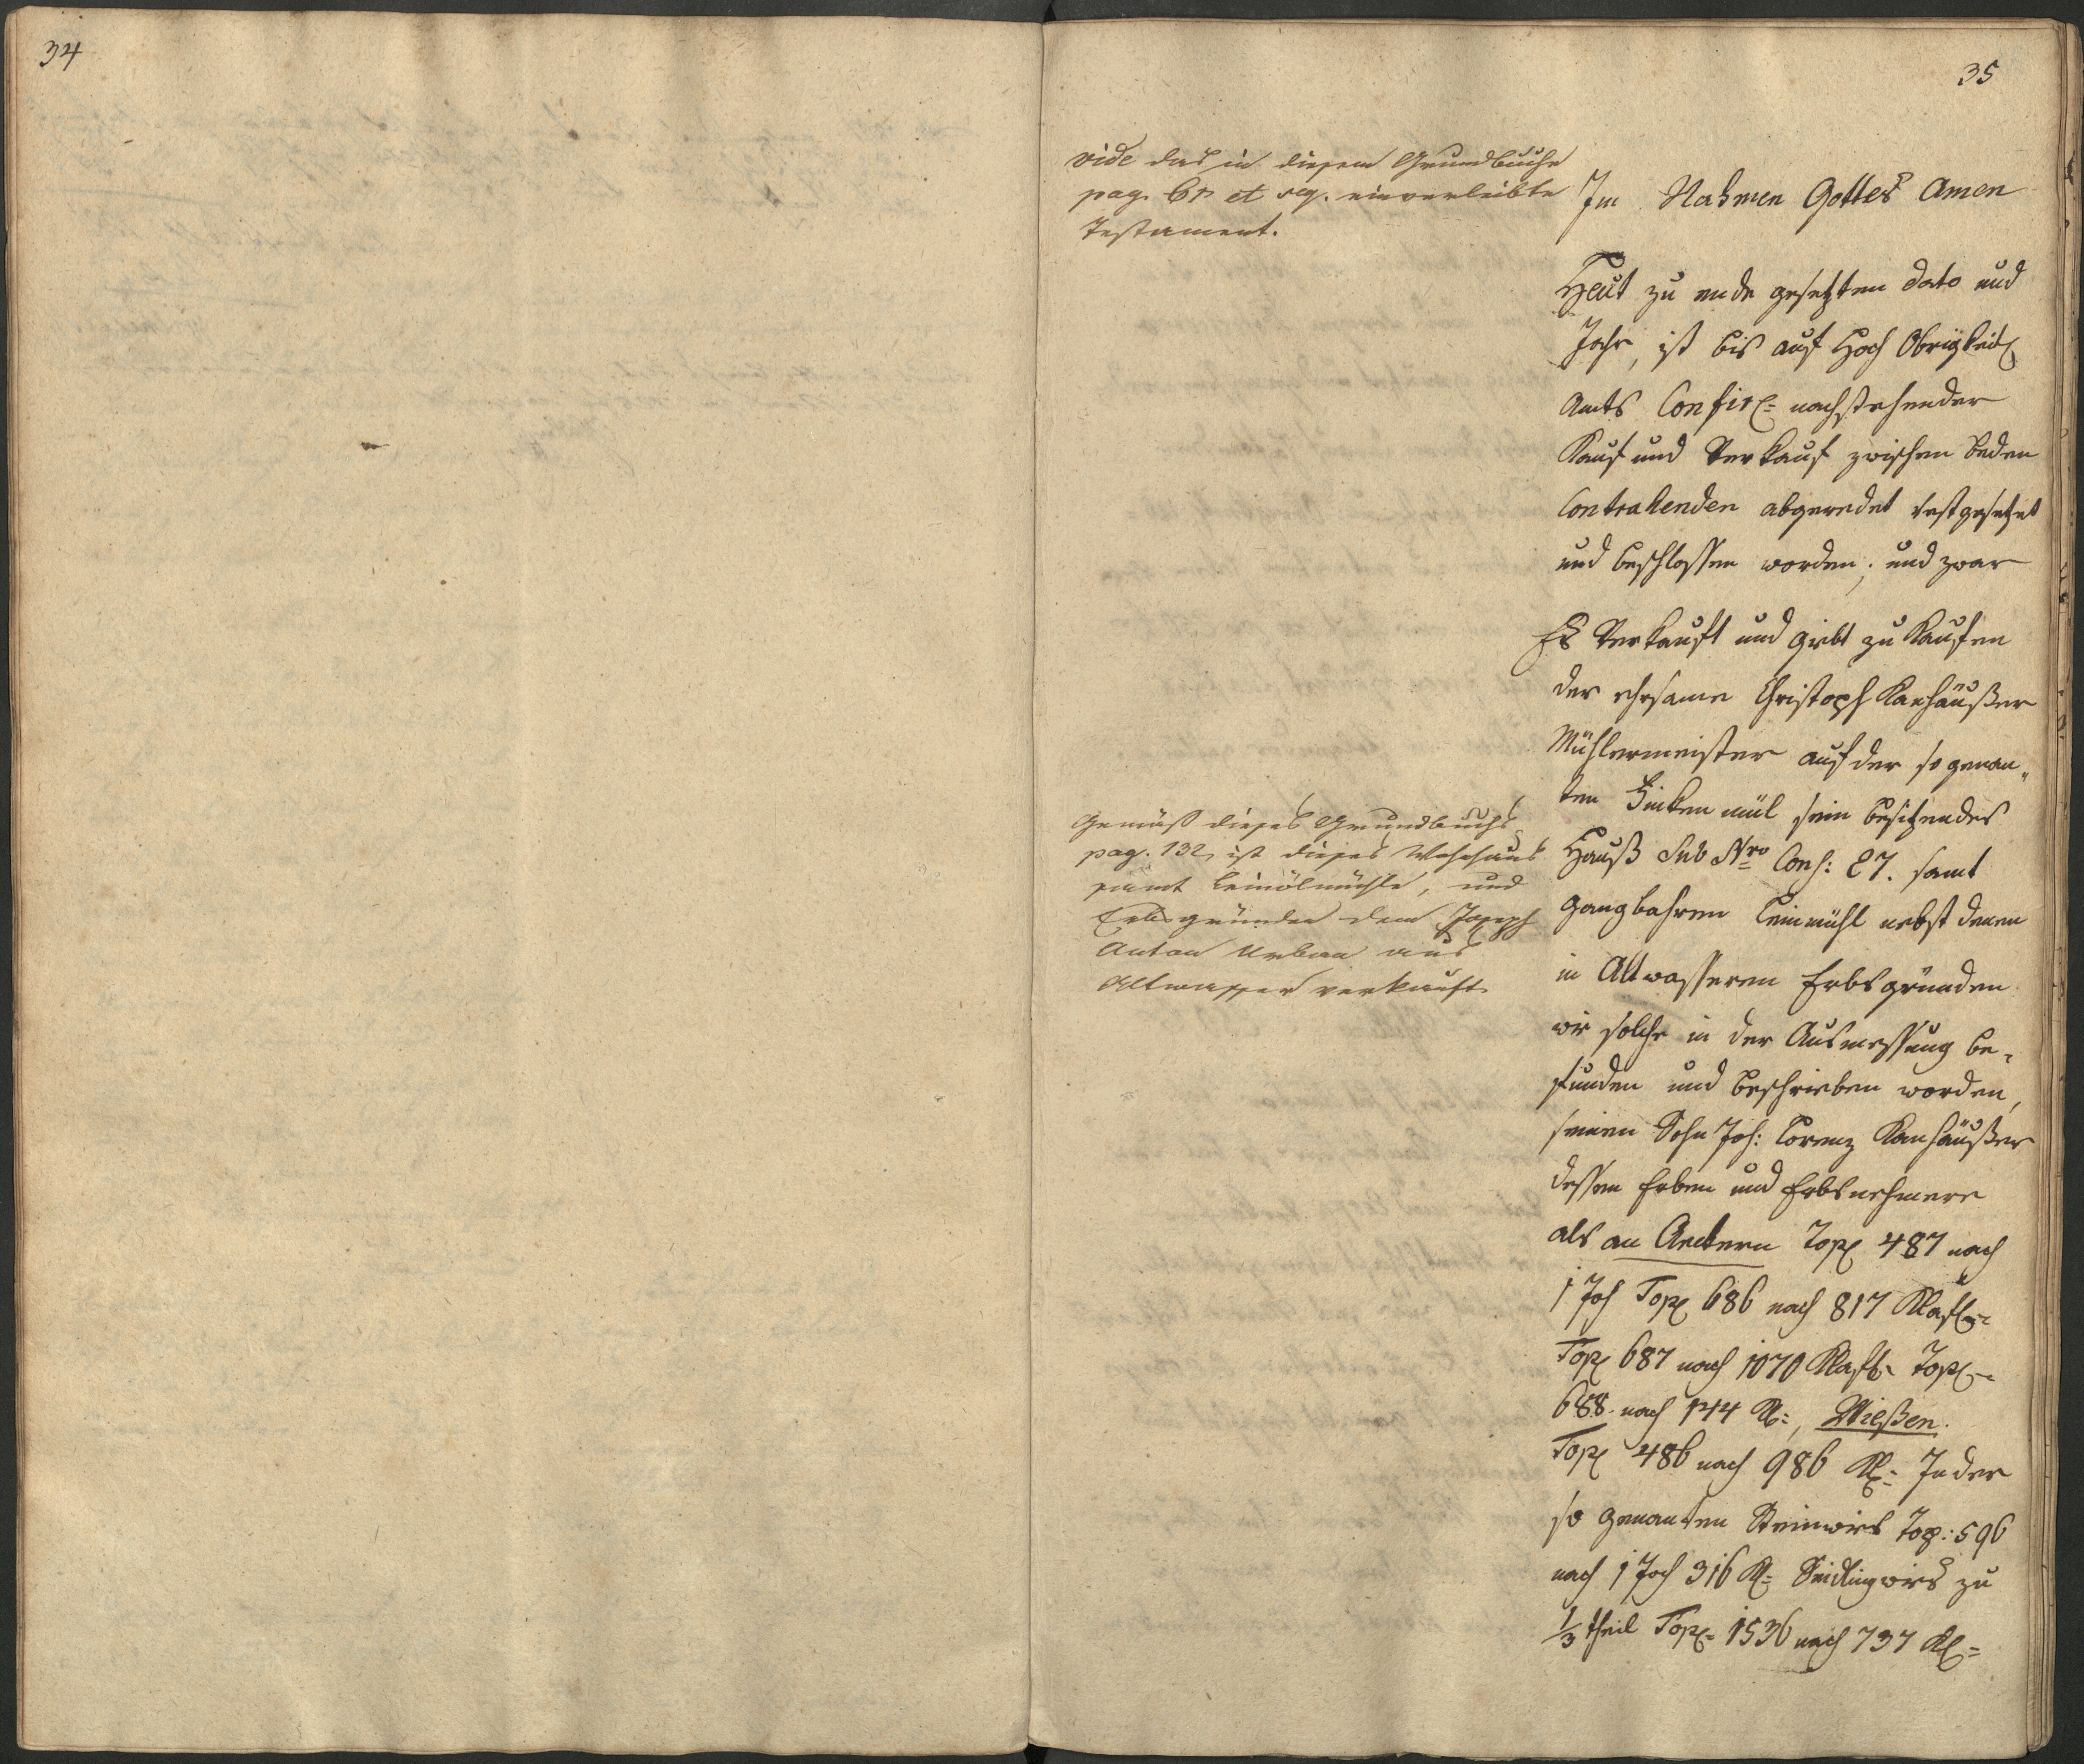 34
35
vide das in diesem Grundbuche
pag. 61 et seq. einverleibte
Testament.
Im Nahmen Gottes Amen
Heut zu ende gesetzten dato und
Jahr, ist bis auf Hoch Obrigkeitl
Amts Confir= nachstehender
Kauf und Verkauf zwischen beden
Contrahenden abgeredet vestgesetzet
und beschlossen worden; und zwar
Es Verkauft und giebt zu Kaufen
der ehrsame Christoph Kanhäußer
Mühlermeister auf der so genan„
ten mül sein besitzendes
Hauß Sub Nro Consc: 27. samt
gangbahren Leinmühl nebst denen
in Altwasseren Erbsgründen
wie solche in der Ausmessung be„
funden und beschrieben worden,
seinen Sohn Joh: Lorenz Kanhäußer
dessen Erben und Erbsnehmere
als an Aeckern Top 487 nach
1 Joch Top 686 nach 817 Klaft=
Top 687 nach 1070 Klaft= Top=
688. nach 144 Kl=, Wießen.
Top 486 nach 986 Kl= In der
so genanten Steinwies Top: 596
nach 1 Joch 316 Kl= Seidlingwies zu
1/3 theil Top= 1536 nach 737 Kl=
Gemäß dieses Grundbuchs
pag. 132, ist dieses Wohnhaus
samt Leinölmühle, und
Erbsgründen dem Joseph
Anton Urban aus
Altwasser verkauft